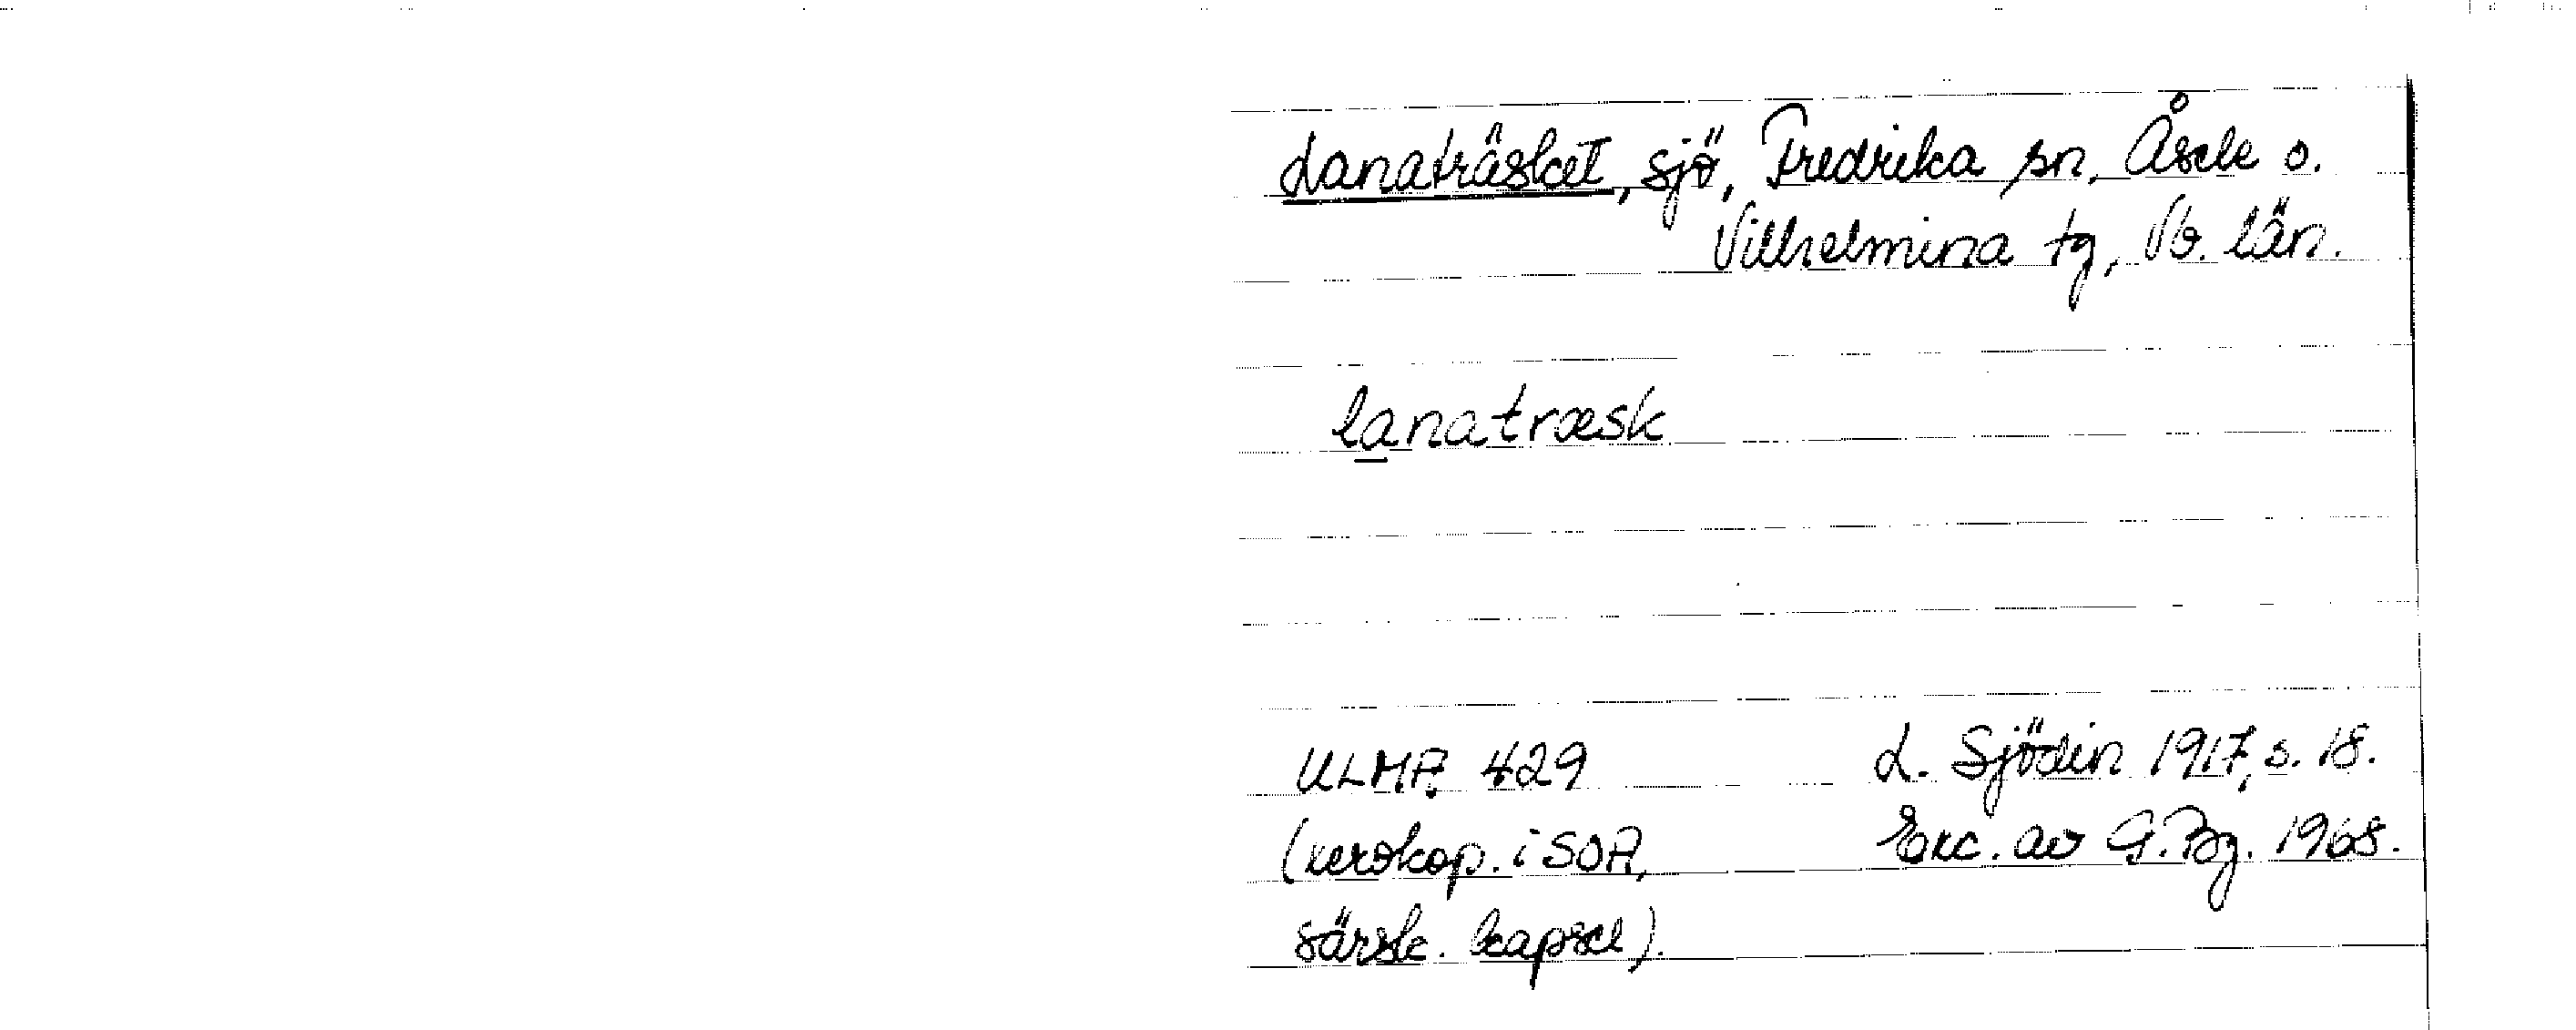 Lanaträsket, sjö, Fredrika sn, Åsele o.
Vilhelmina tg, Vb. län.
lanatræsk
ULMA 429 L. Sjödin 1917, s. 18.
(xerokop. i SOA, Exc. av G. Bg. 1968.
särsk. kapsel).